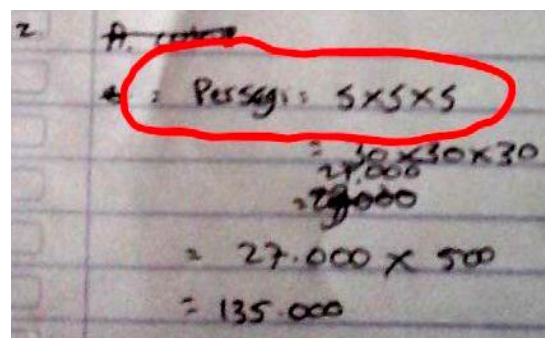 2.
: Persegi = S×S×S
= 30×30×30
27.000
=
= 27.000 × 500
= 135.000